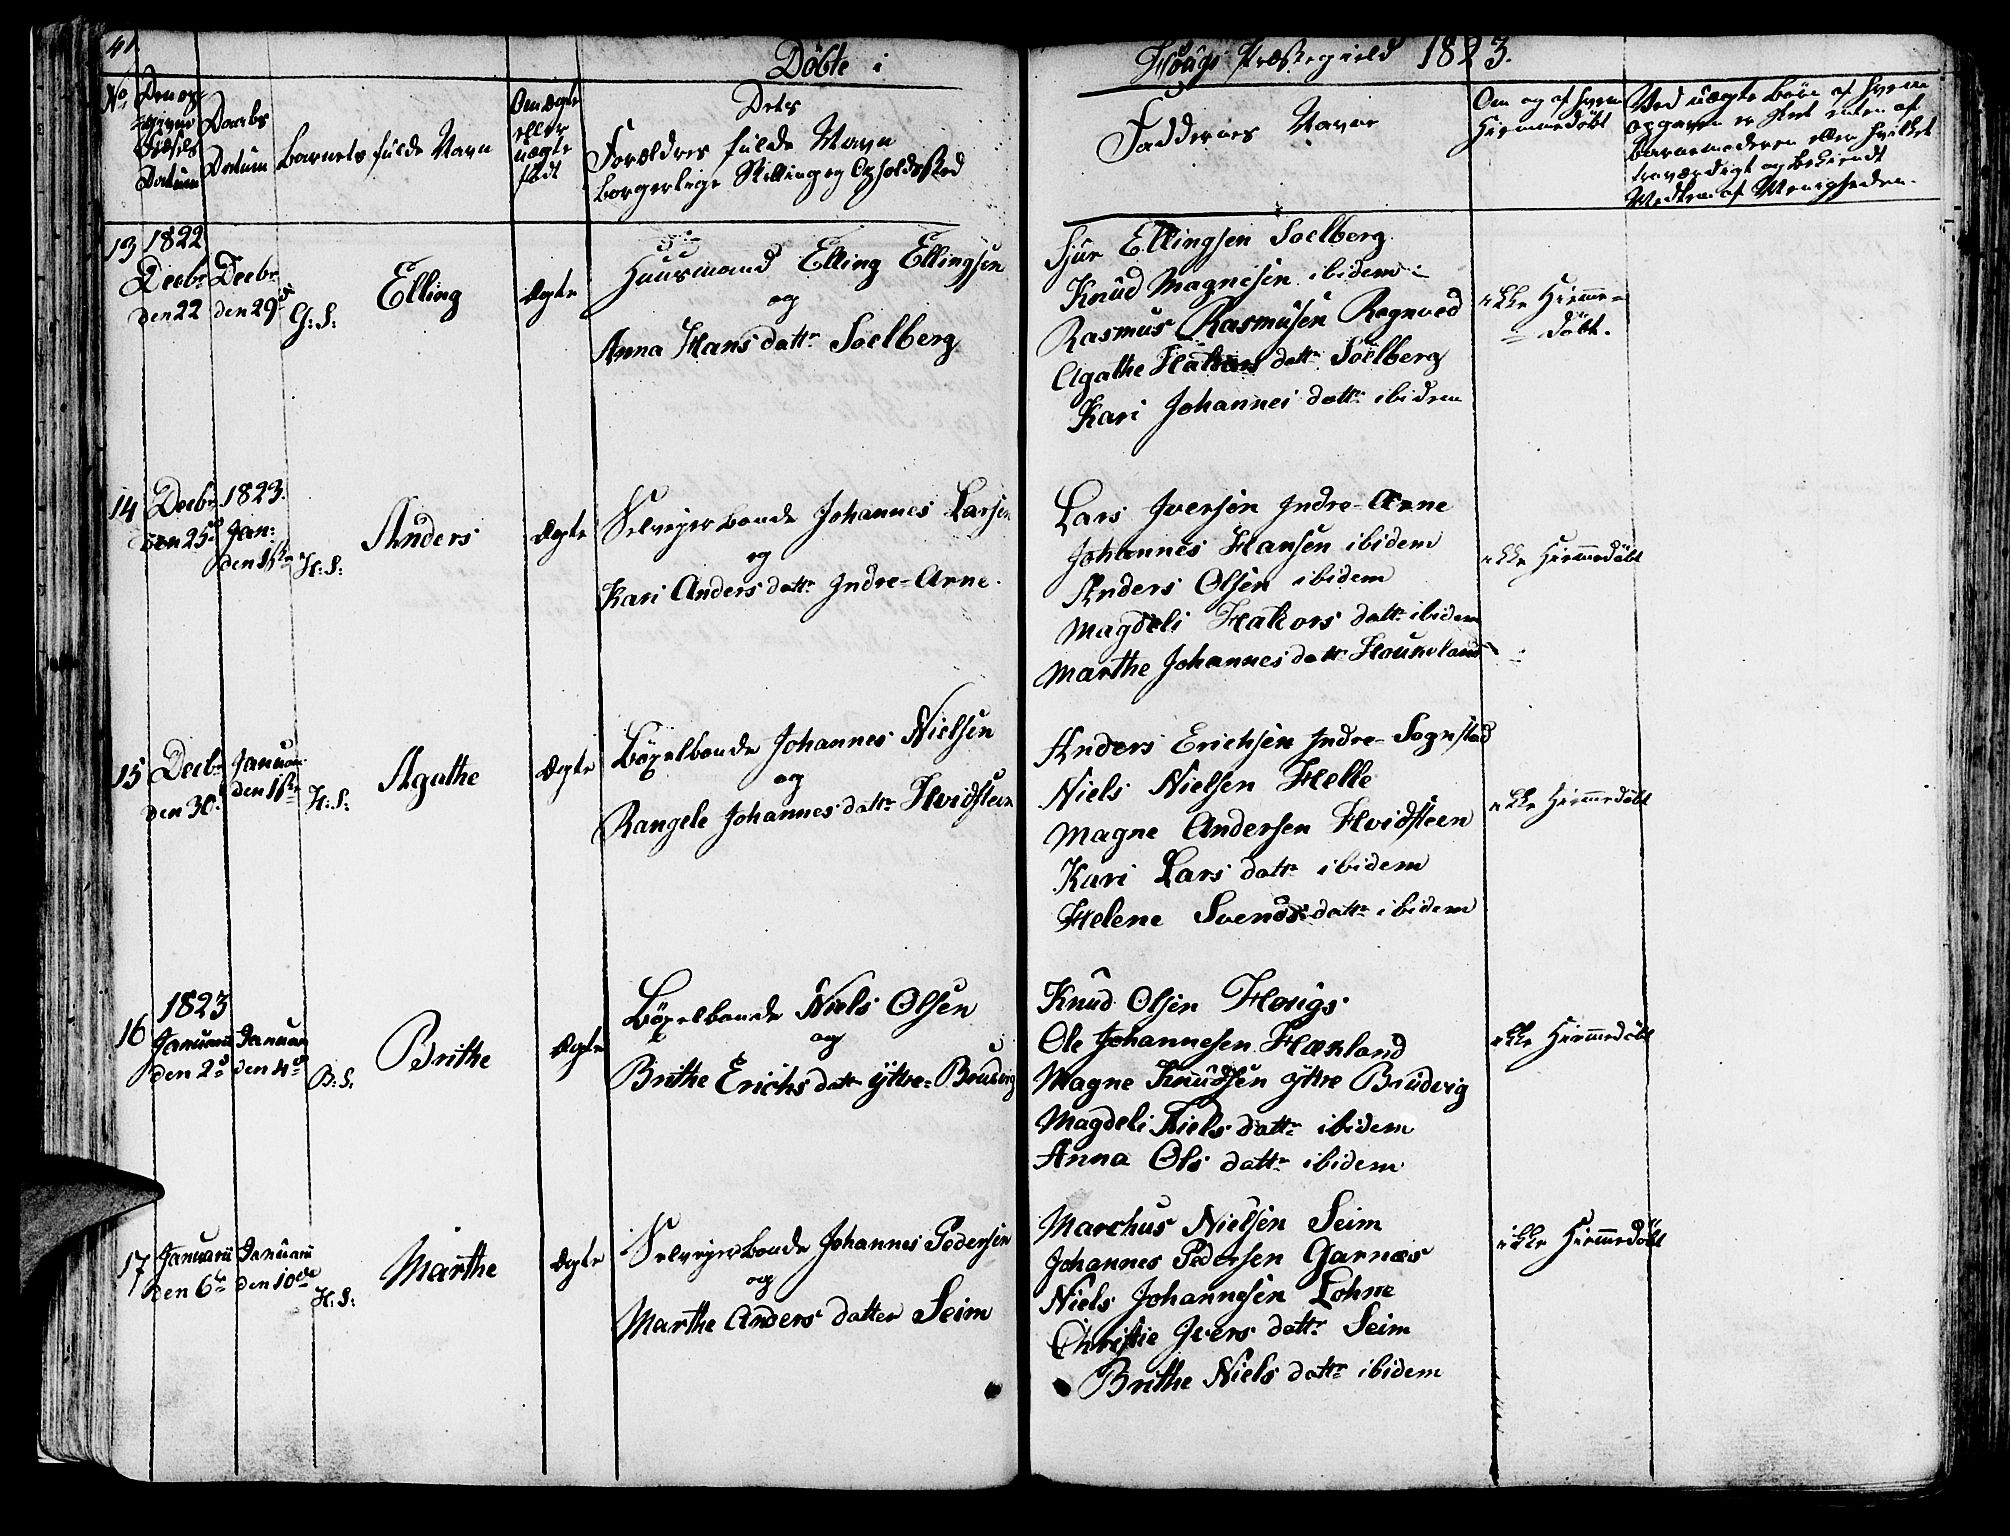 41
Döbte i
Hougs Præstegield 1823.
No
Den op-
givne
Födsels
Datum
Daabs
Datum
Barnets fulde Navn
Om ægte
eller
uægte
födt
Dets
Forældres fulde Navn
borgerlige Stilling og Opholdssted
Faddernes Navne
Om og af hvem
Hiemmedöbt
Ved uægte Börn af hvem
Opgaven er skeet enten af
Barnemoderen eller hvilket
troværdigt og bekiendt
Medlem af Menigheden.
13
1822
Decbr
den 22
Decbr
den 29
G: S:
Elling
Ægte
Huusmand Elling Ellingsen
og
Anna Hans dattr Soelberg
Sjur Ellingsen Soelberg
Knud Magnesen ibidem
Rasmus Rasmusen Rognved
Agathe Hakons dattr Soelberg
Kari Johannes dattr ibidem
ikke Hiemme-
döbt.
14
Decbr
den 25d
1823.
Jan:
den 1ste
H: S:
Anders
Ægte
Selveyerbonde Johannes Larsen
og
Kari Anders dattr Indre-Arne.
Lars Iversen Indre-Arne
Johannes Hansen ibidem
Anders Olsen ibidem
Magdeli Hakons dattr ibidem
Marthe Johannes dattr Houkeland
ikke Hiemmedöbt
15
Decbr
den 30
Januar
den 1ste
H: S:
Agathe
Ægte
Böxelbonde Johannes Nielsen
og
Rangele Johannes dattr Hvidsteen
Anders Erichsen Indre-Sognstad
Niels Nielsen Helle
Magne Andersen Hvidsteen
Kari Lars dattr ibidem
Helene Svends dattr ibidem
ikke Hiemmedöbt
16
1823
Januarii
den 2d
Januar
den 4d
B: S.
Brithe
Ægte
Böxelbonde Niels Olsen
og
Brithe Erichs datr Yttre-Brudvig
Knud Olsen Hougs
Ole Johannesen Hækland
Magne Knudsen Yttre Brudvig
Magdeli Niels dattr ibidem
Anna Ols dattr ibidem
ikke Hiemmedöbt
17
Januarii
den 6te
Januarii
den 10de
H: S:
Marthe
Ægte
Selveyerbonde Johannes Pedersen
og
Marthe Anders datter Seim
Marchus Nielsen Seim
Johannes Pedersen Garnæs
Niels Johannesen Lohne
Christie Ivers dattr Seim
Brithe Niels dattr ibidem
ikke Hiemmedöbt